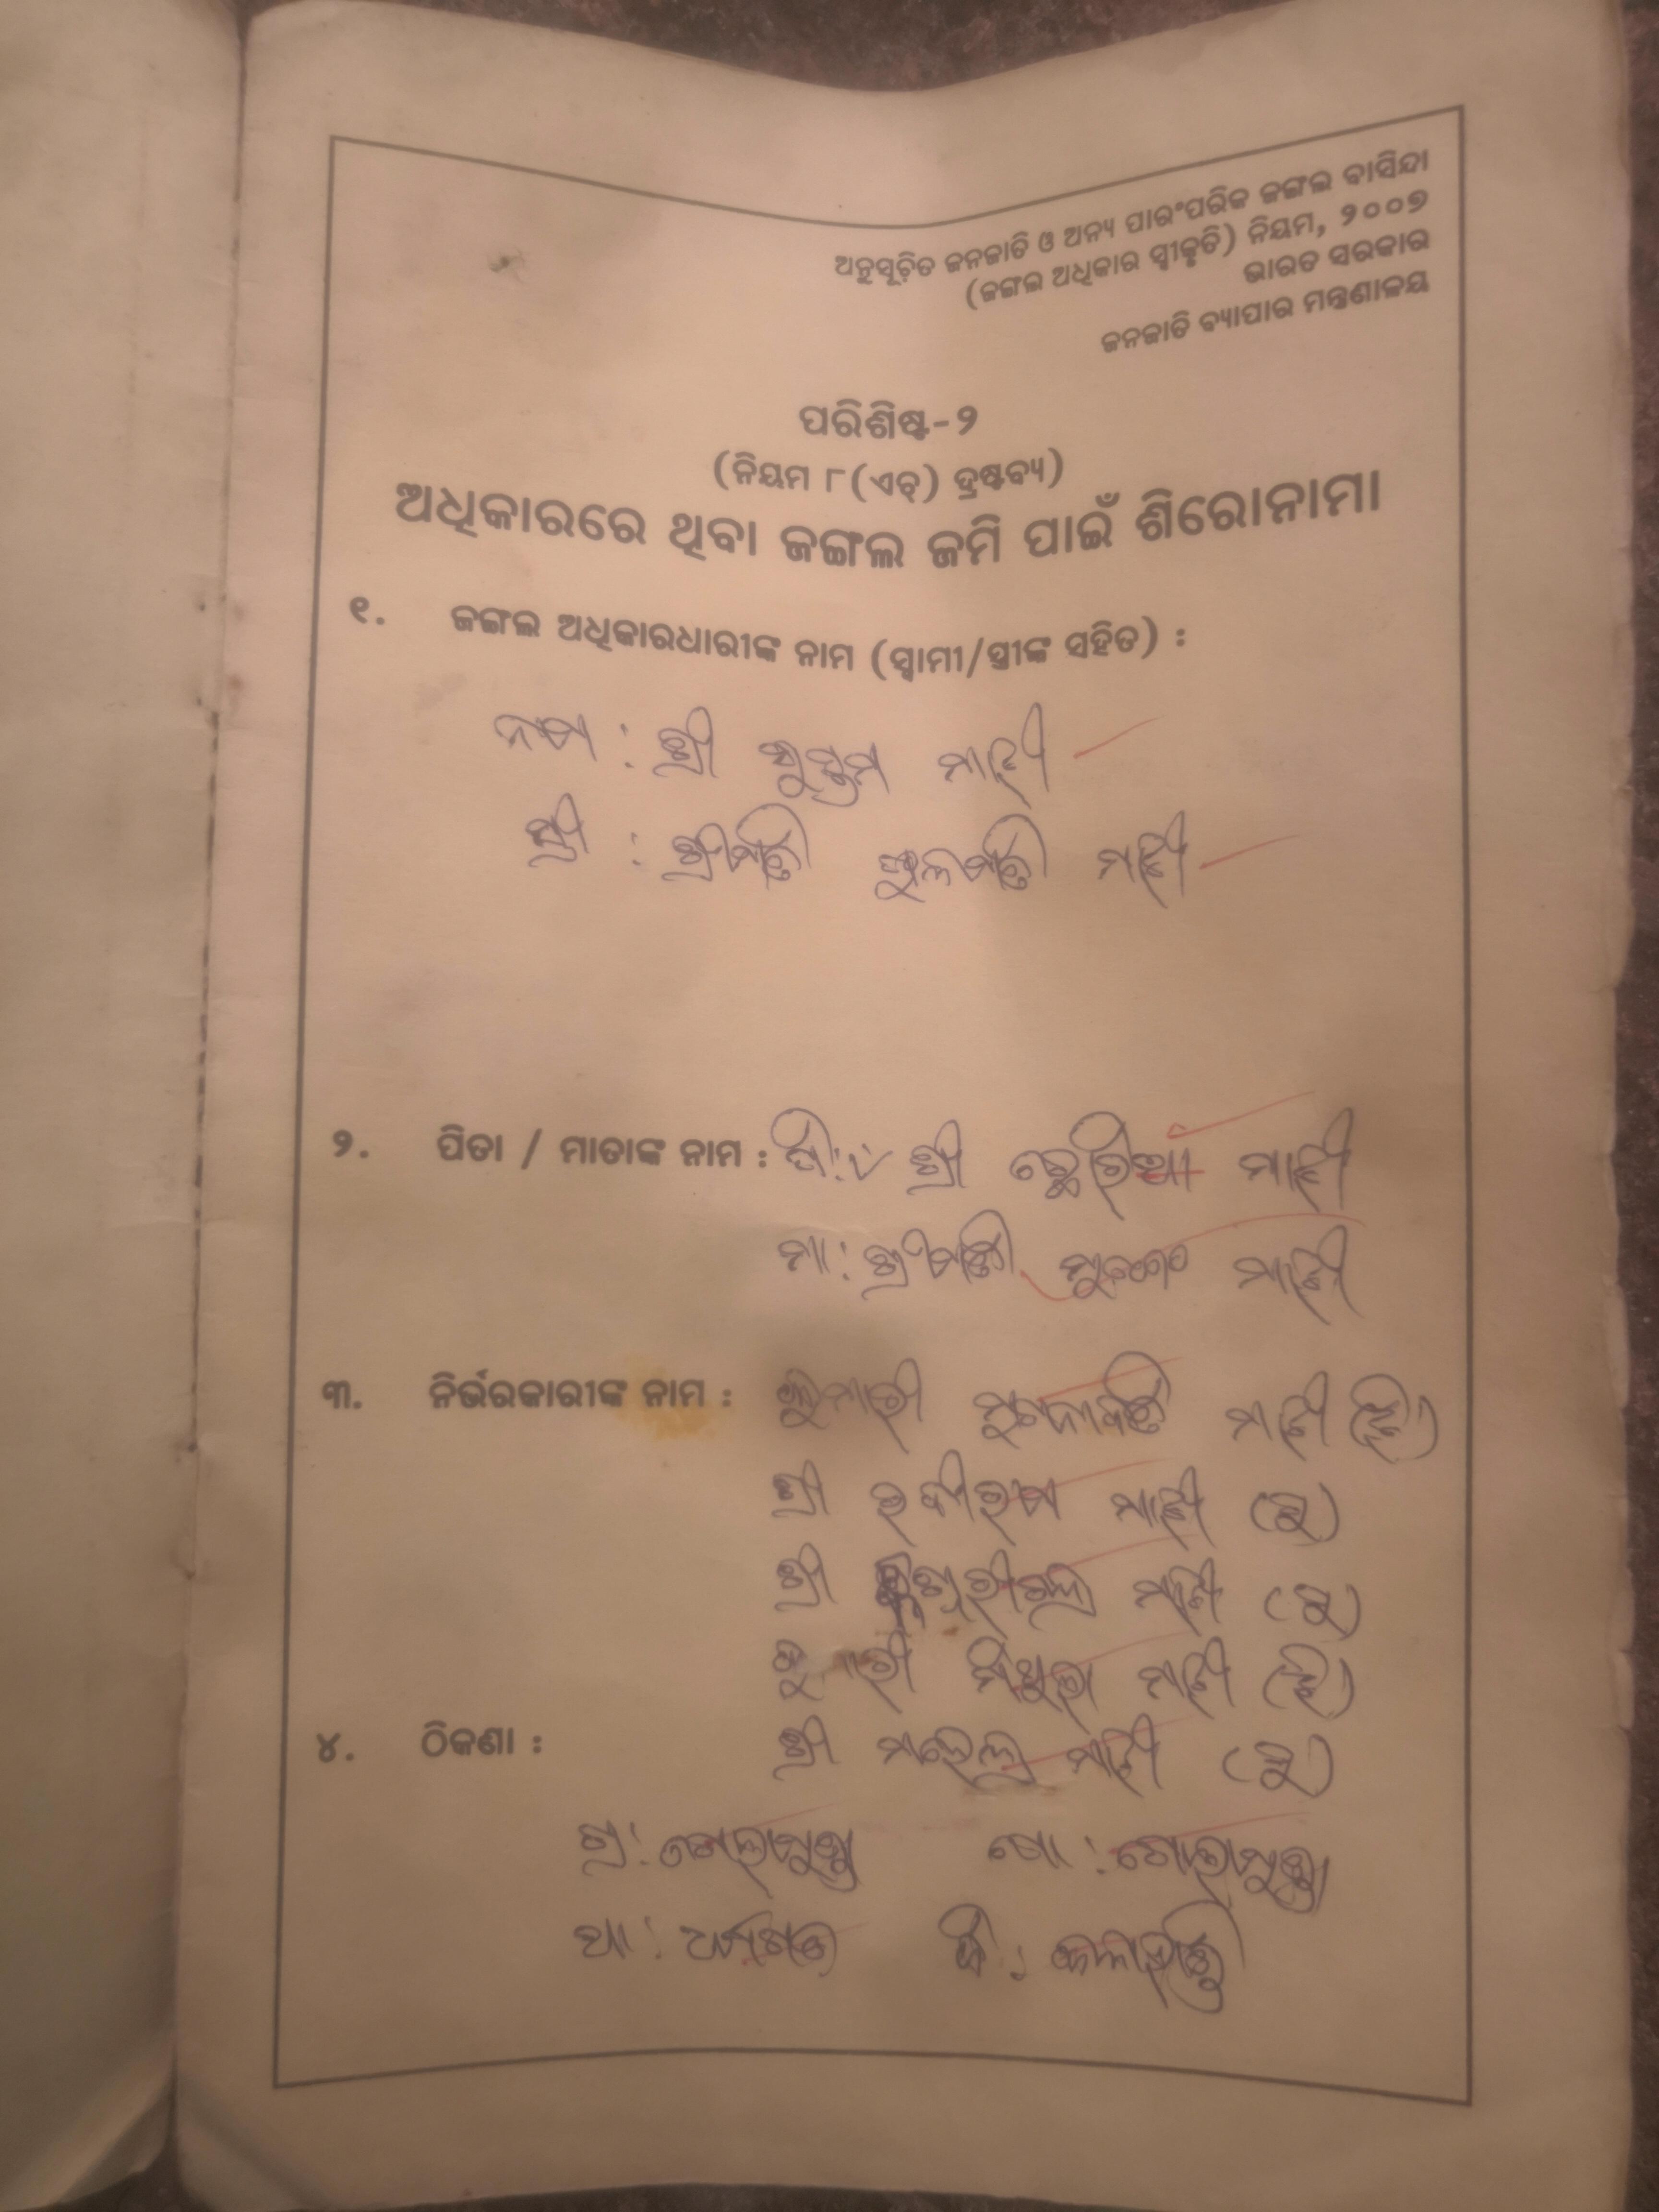 ଅନୁସୂଚିତ ଜନଜାତି ଓ ଅନ୍ୟ ପାରଂପରିକ ଜଙ୍ଗଲ ବାସିନ୍ଦା
(ଜଙ୍ଗଲ ଅଧିକାର ସ୍ୱୀକୃତି) ନିୟମ, ୨୦୦୭
ଭାରତ ସରକାର
ଜନଜାତି ବ୍ୟାପାର ମନ୍ତ୍ରଣାଳୟ
ପରିଶିଷ୍ଟ-୨
(ନିୟମ ୮(ଏଚ୍) ଦ୍ରଷ୍ଟବ୍ୟ)
ଅଧିକାରରେ ଥିବା ଜଙ୍ଗଲ ଜମି ପାଇଁ ଶିରୋନାମା
୧. ଜଙ୍ଗଲ ଅଧିକାରଧାରୀଙ୍କ ନାମ (ସ୍ୱାମୀ/ସ୍ତ୍ରୀଙ୍କ ସହିତ) :
ନାମ : ଶ୍ରୀ ମାଝୀ
ସ୍ତ୍ରୀ : ଶ୍ରୀମତି ଫୁଲମତି ମାଝୀ
୨. ପିତା / ମାତାଙ୍କ ନାମ : ପି: ଶ୍ରୀ ମାଝୀ
ମା: ଶ୍ରୀମତୀ ମାଝୀ
୩. ନିର୍ଭରକାରୀଙ୍କ ନାମ : କୁମାରୀ ମାଝୀ (ଝି)
ଶ୍ରୀ ମାଝୀ (ପୁ)
ଶ୍ରୀ ମାଝୀ (ପୁ)
ମାଝୀ (ଝି)
୪. ଠିକଣା : ଶ୍ରୀ ମାଝୀ (ପୁ)
ଗ୍ରା: ପୋ :
ଥା : ଧର୍ମଗଡ ଜି : କଳାହାଣ୍ଡି